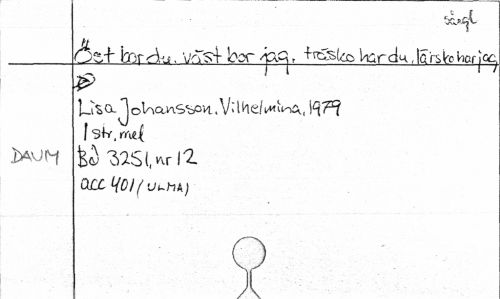 sångl
Öst bor du, väst bor jag, träsko har du, lärsko har jag
Lisa Johansson, Vilhelmina, 1979
1 str, mel
DAUM
Bd 3251, nr 12
acc 401 (ULMA)